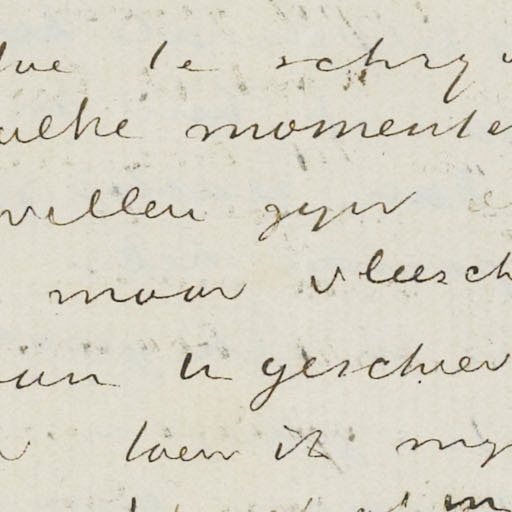 te schryv
zulke momenten
willen zyn
maar vleesch
aan U geschrev
toen ik my